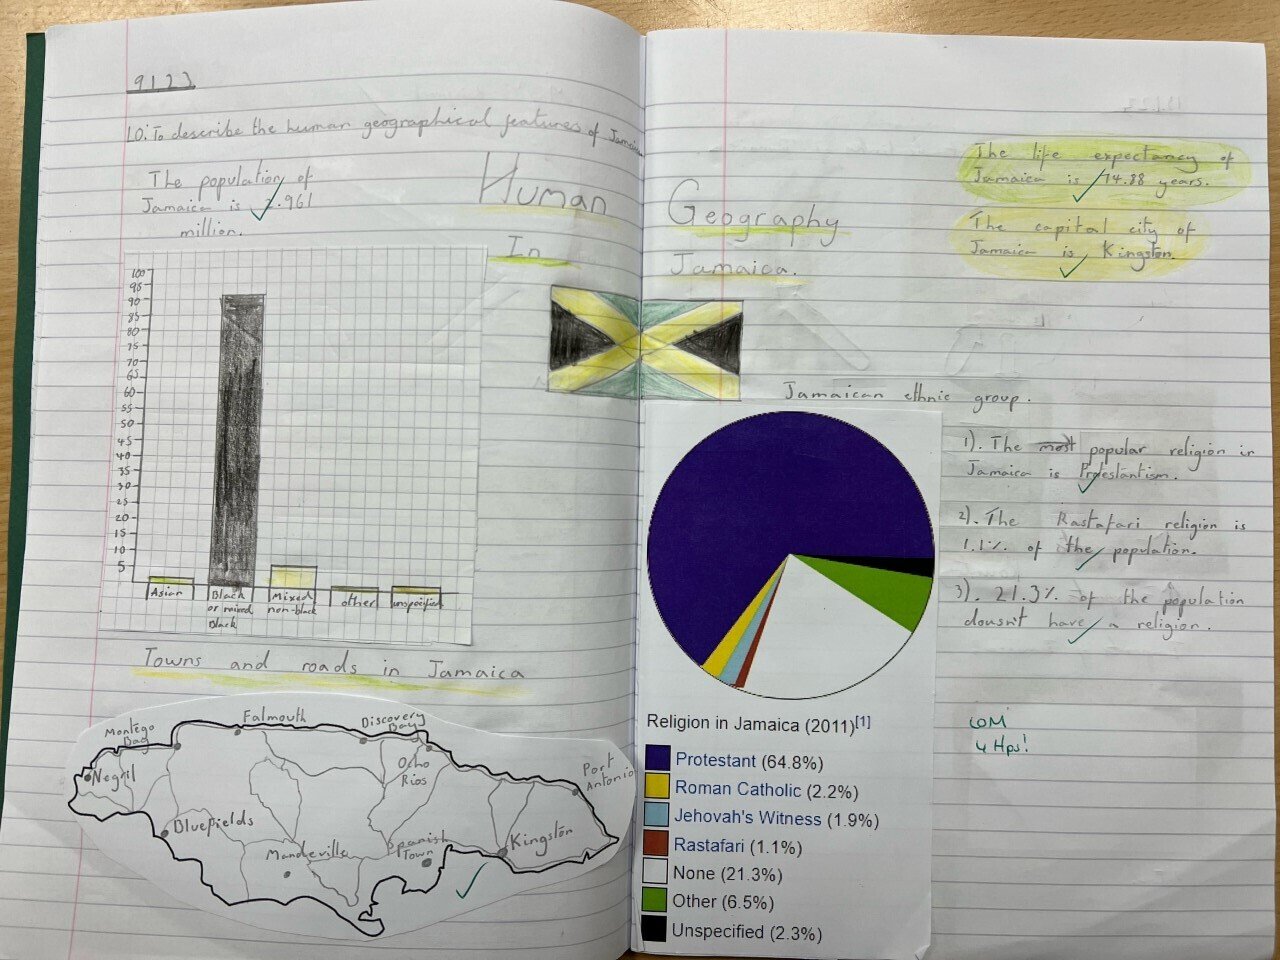 9.1.23
LO: To describe the human geographical features of Jamaica
The population of
Jamaica is 2.961
million.
Human
In
100
95
90
85
80
75
70
65
60
55
50
45
40
35
30
25
20
15
10
5
Asian
Black
or mixed
Black
Mixed
non-black
other
unspecified
Towns and roads in Jamaica
Montego
Bay
Falmouth
Discovery
Bay
Ocho
Rios
Port
Antonio
Negril
Bluefields
Mandeville
Spanish
Town
Kingston
Geography
Jamaica.
The life expectancy of
Jamaica is 74.88 years.
The capital city of
Jamaica is Kingston.
Jamaican ethnic group.
1). The most popular religion in
Jamaica is Protestantism.
2). The Rastafari religion is
1.1% of the population.
3). 21.3% of the population
dousn't have a religion.
4 Hps!
Religion in Jamaica (2011)[1]
Protestant (64.8%)
Roman Catholic (2.2%)
Jehovah's Witness (1.9%)
Rastafari (1.1%)
None (21.3%)
Other (6.5%)
Unspecified (2.3%)